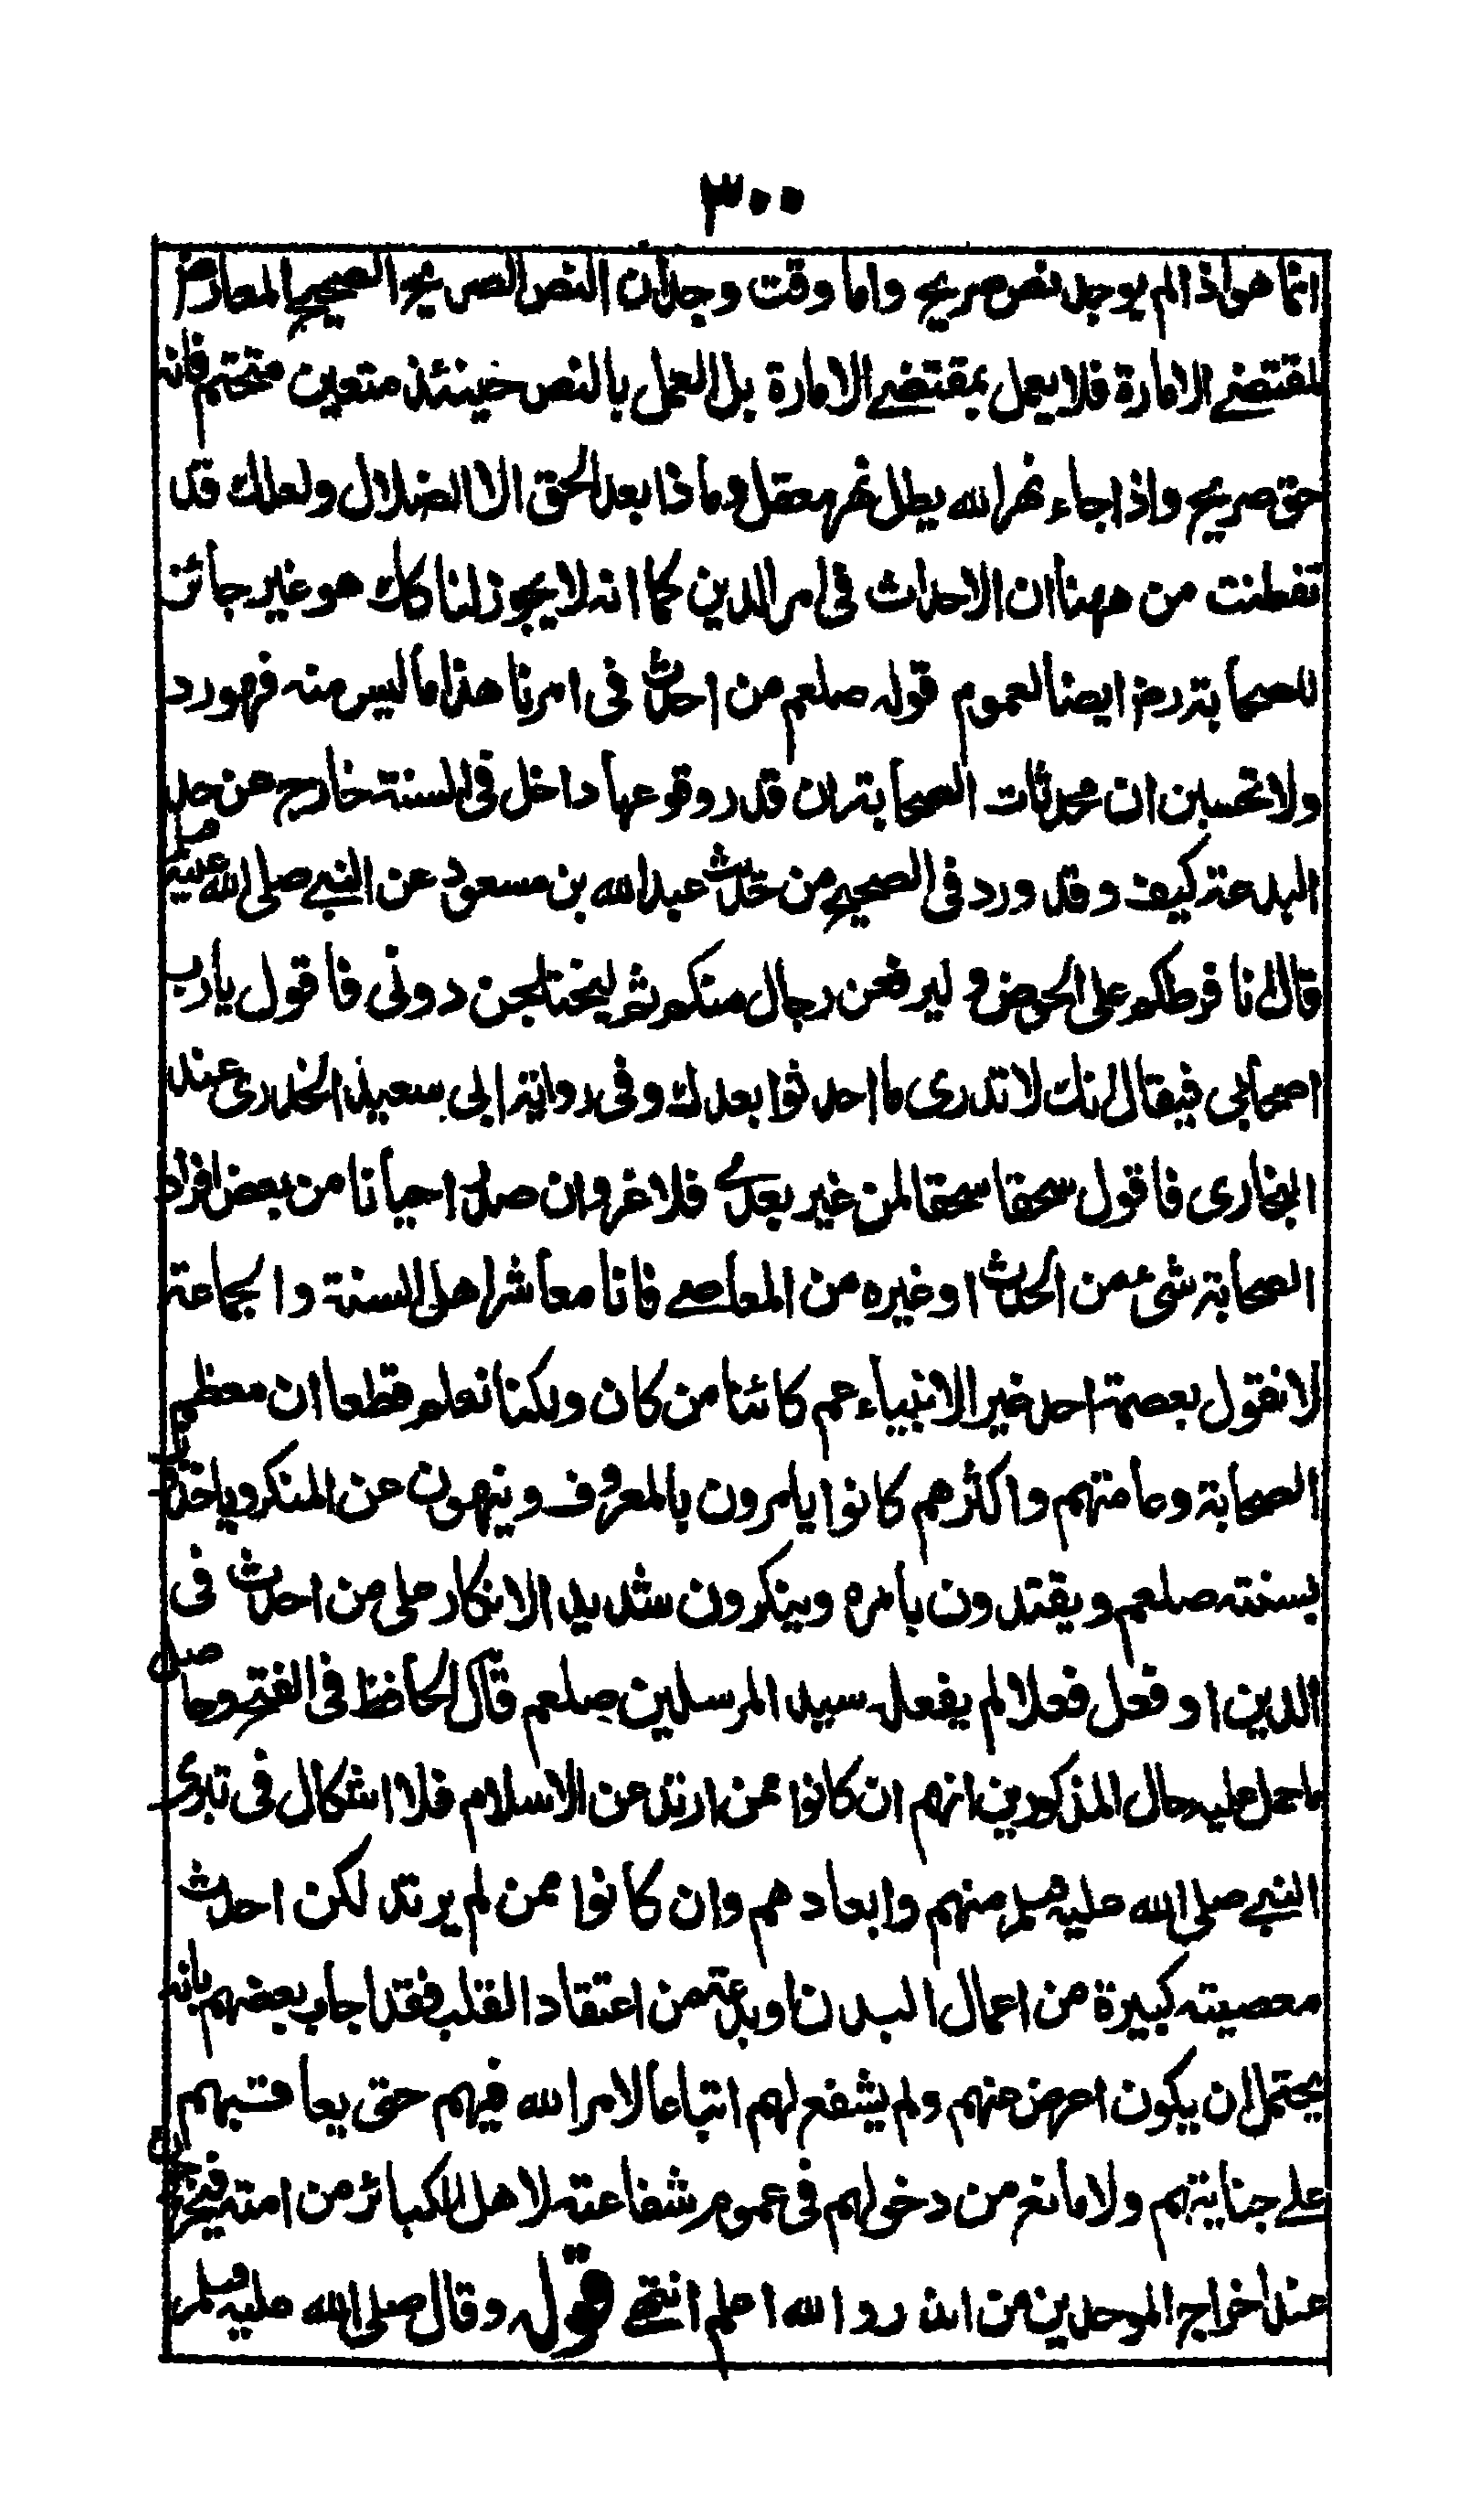 ٣٠٠
انما هو اذا لم يوجد نص صريح واما وقت وجدان النص الصريح الصحيح المعارض
لمقتضى الامارة فلا يعمل بمقتضى الامارة بل العمل بالنص حينئذ متعين متحتم فانه
حق صريح واذا جاء نهر الله يطل نهر معقل وماذا بعد الحق الا الضلال ولعلك قد
تفطنت من ههنا ان الاحداث فى امر الدين كما انه لا يجوز لنا كك هو غير جائز
للصحابة رضـ ايضا لعموم قوله صلعم من احدث فى امرنا هذا ما ليس منه فهو رد
ولا تحسبن ان محدثات الصحابة ان قدر وقوعها داخل فى السنة خارج عن حد
البدعة كيف وقد ورد فى الصحيح من حديث عبد الله بن مسعود عن النبى صلى الله عليه وسلم
قال انا فرطكم على الحوض و ليرفعن رجال منكم ثم ليختلجن دونى فاقول يا رب
اصحابى فيقال انك لا تدرى ما احدثوا بعدك وفى رواية ابى سعيد الخدرى عند
البخارى فاقول سحقا سحقا لمن غير بعدى فلا غرو ان صدر احيانا من بعض افراد
الصحابة شئ من الحدث او غيره من المعاصى فانا معاشر اهل السنة والجماعة
لا نقول بعصمة احد غير الانبياء عم كائنا من كان ولكنا نعلم قطعا ان معظم
الصحابة وعامتهم واكثرهم كانوا يامرون بالمعروف وينهون عن المنكر وياخذون
بسنته صلعم ويقتدون بامره وينكرون شديد الانكار على من احدث فى
الدين او فعل فعلا لم يفعله سيد المرسلين صلعم قال الحافظ فى الفتح وحاصل
ما حمل عليه حال المذكورين انهم ان كانوا ممن ارتد عن الاسلام فلا اشكال فى تبرى
النبى صلى الله عليه وسلم منهم وابعادهم وان كانوا ممن لم يرتد لكن احدث
معصيته كبيرة من اعمال البدن او بدعة من اعتقاد القلب فقد اجاب بعضهم بانه
يحتمل ان يكون اعرض عنهم ولم يشفع لهم اتباعا لامر الله فيهم حتى يعاقبهم
على جنايتهم ولا مانع من دخولهم فى عموم شفاعته لاهل الكبائر من امته فيخرجون
عند اخراج الموحدين من النار والله اعلم انتهى قوله وقال صلى الله عليه وسلم